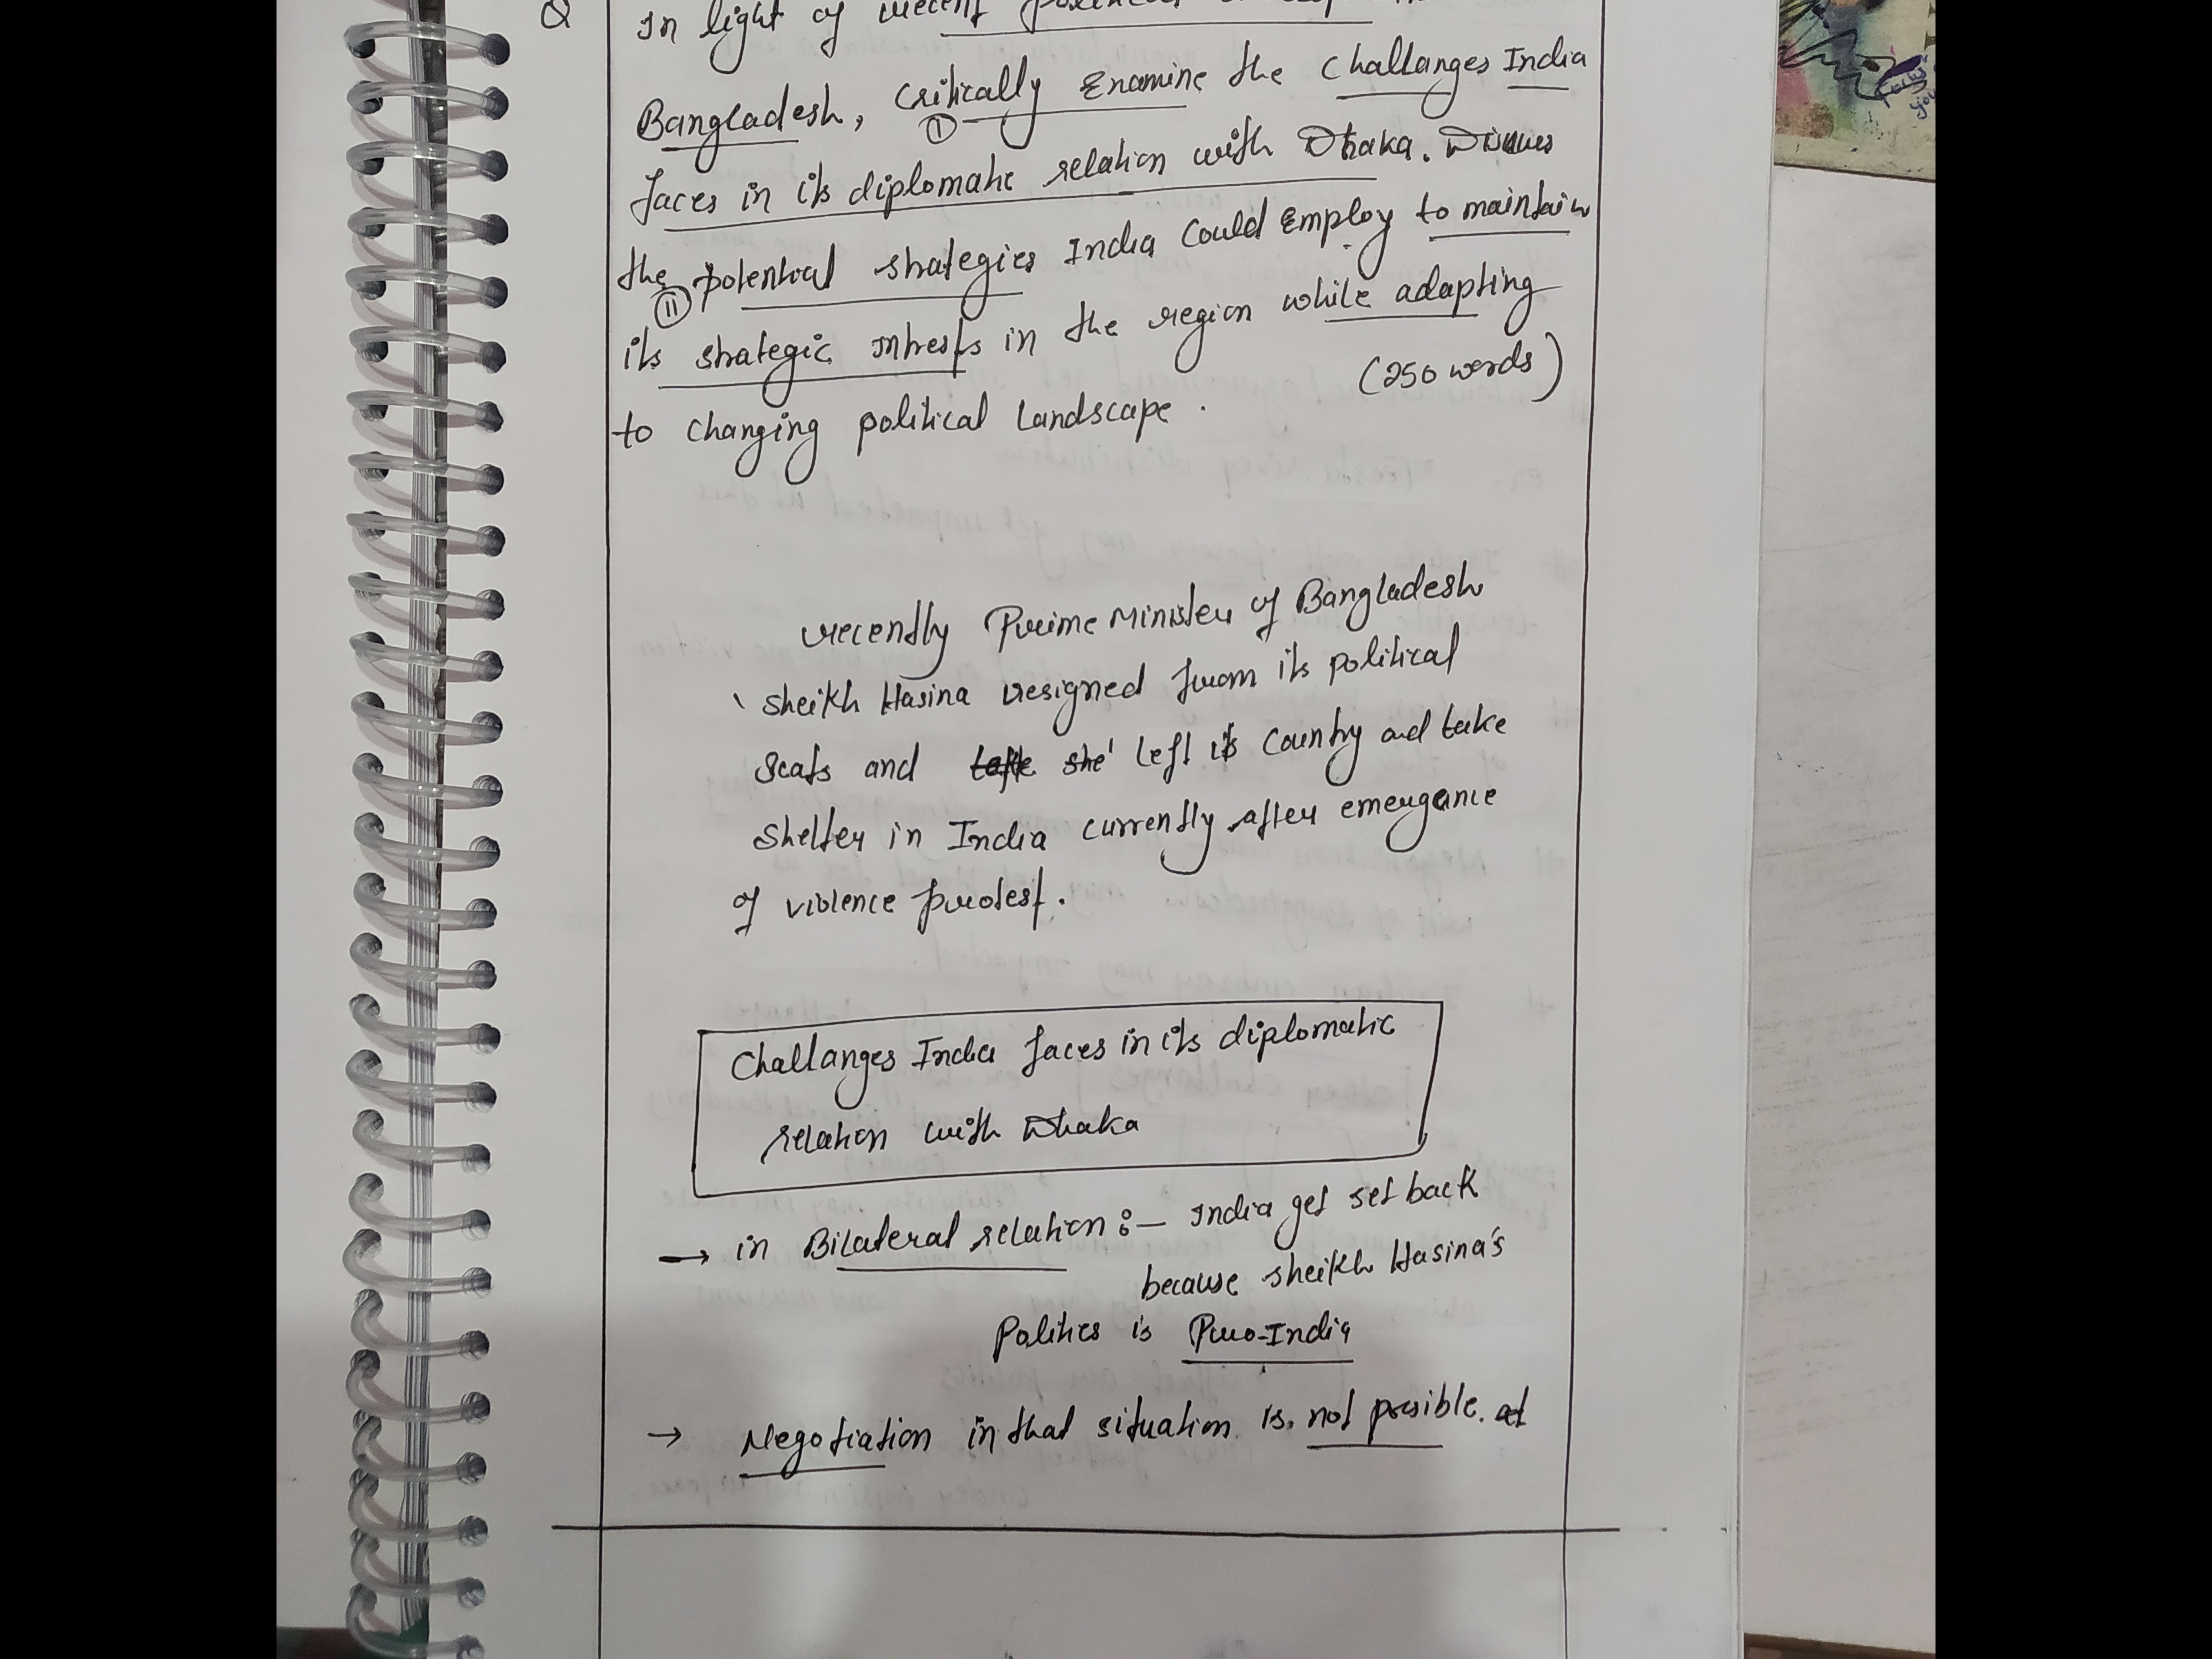 Q In light of recent
Bangladesh, Critically Examine the Challanges India
I
faces in its diplomatic relation with Dhaka. Discuss
the potential strategies India Could Employ to maintain
II
its strategic intrests in the region while adapting
(250 words)
to changing political Landscape.
recently Prime Minister of Bangladesh
Sheikh Hasina resigned from its political
Seats and she left its Country and take
Shelter in India Currently after emergance
of violence protest.
Challanges India faces in its diplomatic
relation with Dhaka
→ in Bilateral relation :- India get set back
because Sheikh Hasina's
Politics is Pro-India
→ Negotiation in that situation is not possible. at